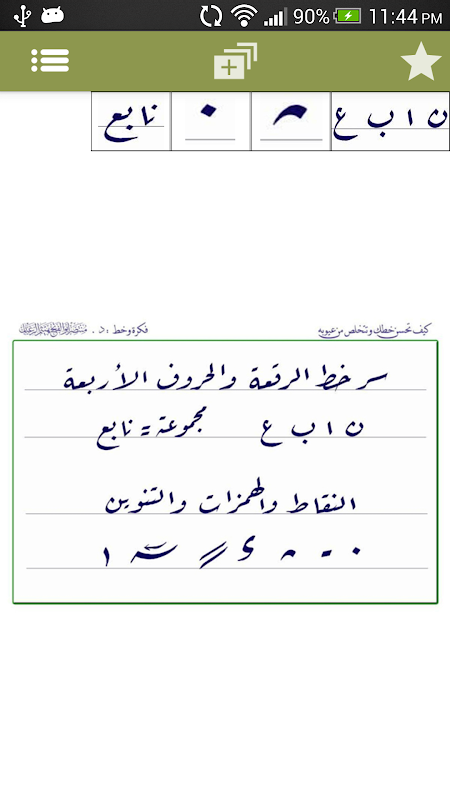 90% 11:44 PM
ن ا ب ع
نابع
كيف تحسن خطك وتتخلص من عيوبه
فكرة وخط : د.
سر خط الرقعة والحروف الأربعة
ن ا ب ع مجموعة = نابع
النقاط والهمزات والتنوين